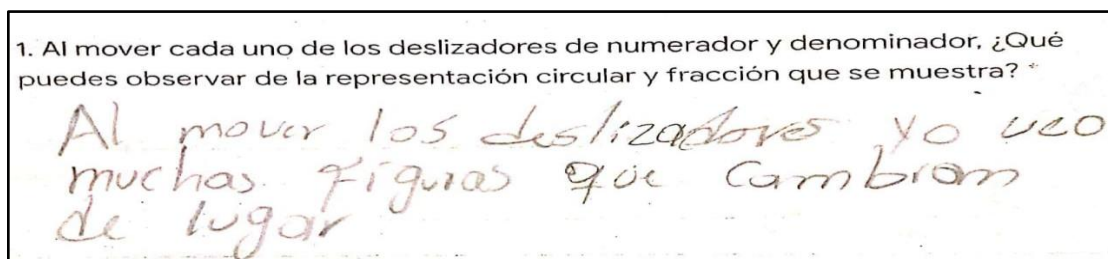 1. Al mover cada uno de los deslizadores de numerador y denominador, ¿Qué
puedes observar de la representación circular y fracción que se muestra? *
Al mover los deslizadores yo veo
muchas figuras que cambian
de lugar